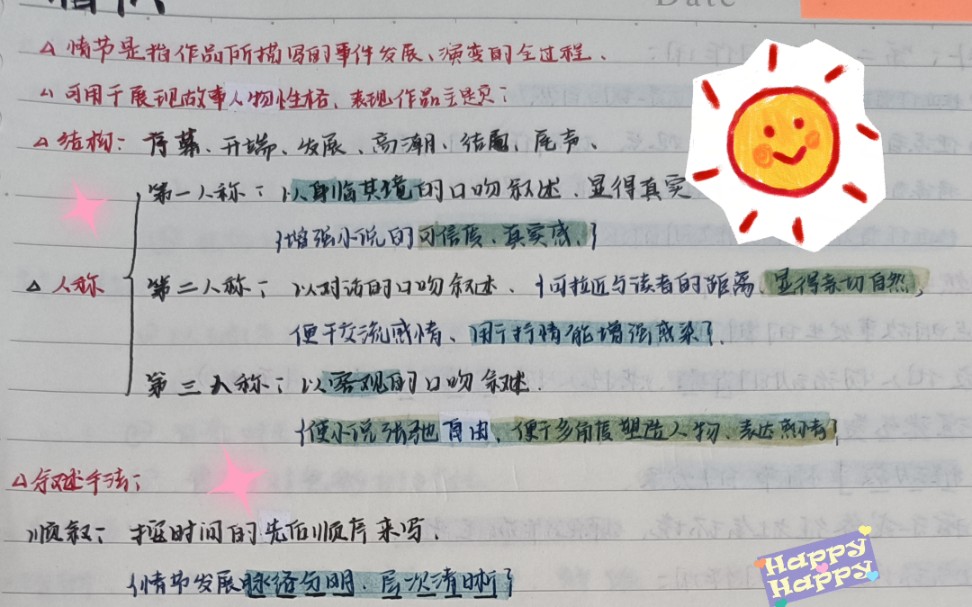 Date
△ 情节是指作品所描写的事件发展、演变的全过程.
△ 可用于展现故事人物性格、表现作品主题;
△ 结构: 序幕、开端、发展、高潮、结局、尾声、
第一人称: 以身临其境的口吻叙述、显得真实
{增强小说的可信度、真实感.}
△ 人称
第二人称: 以对话的口吻叙述. {可拉近与读者的距离、显得亲切自然,
便于交流感情、用于抒情能增强感染}.
第三人称: 以客观的口吻叙述.
{使小说张弛自由、便于多角度塑造人物、表达感情}
△ 叙述手法:
顺叙: 按时间的先后顺序来写.
{情节发展脉络分明、层次清晰}
Happy
Happy